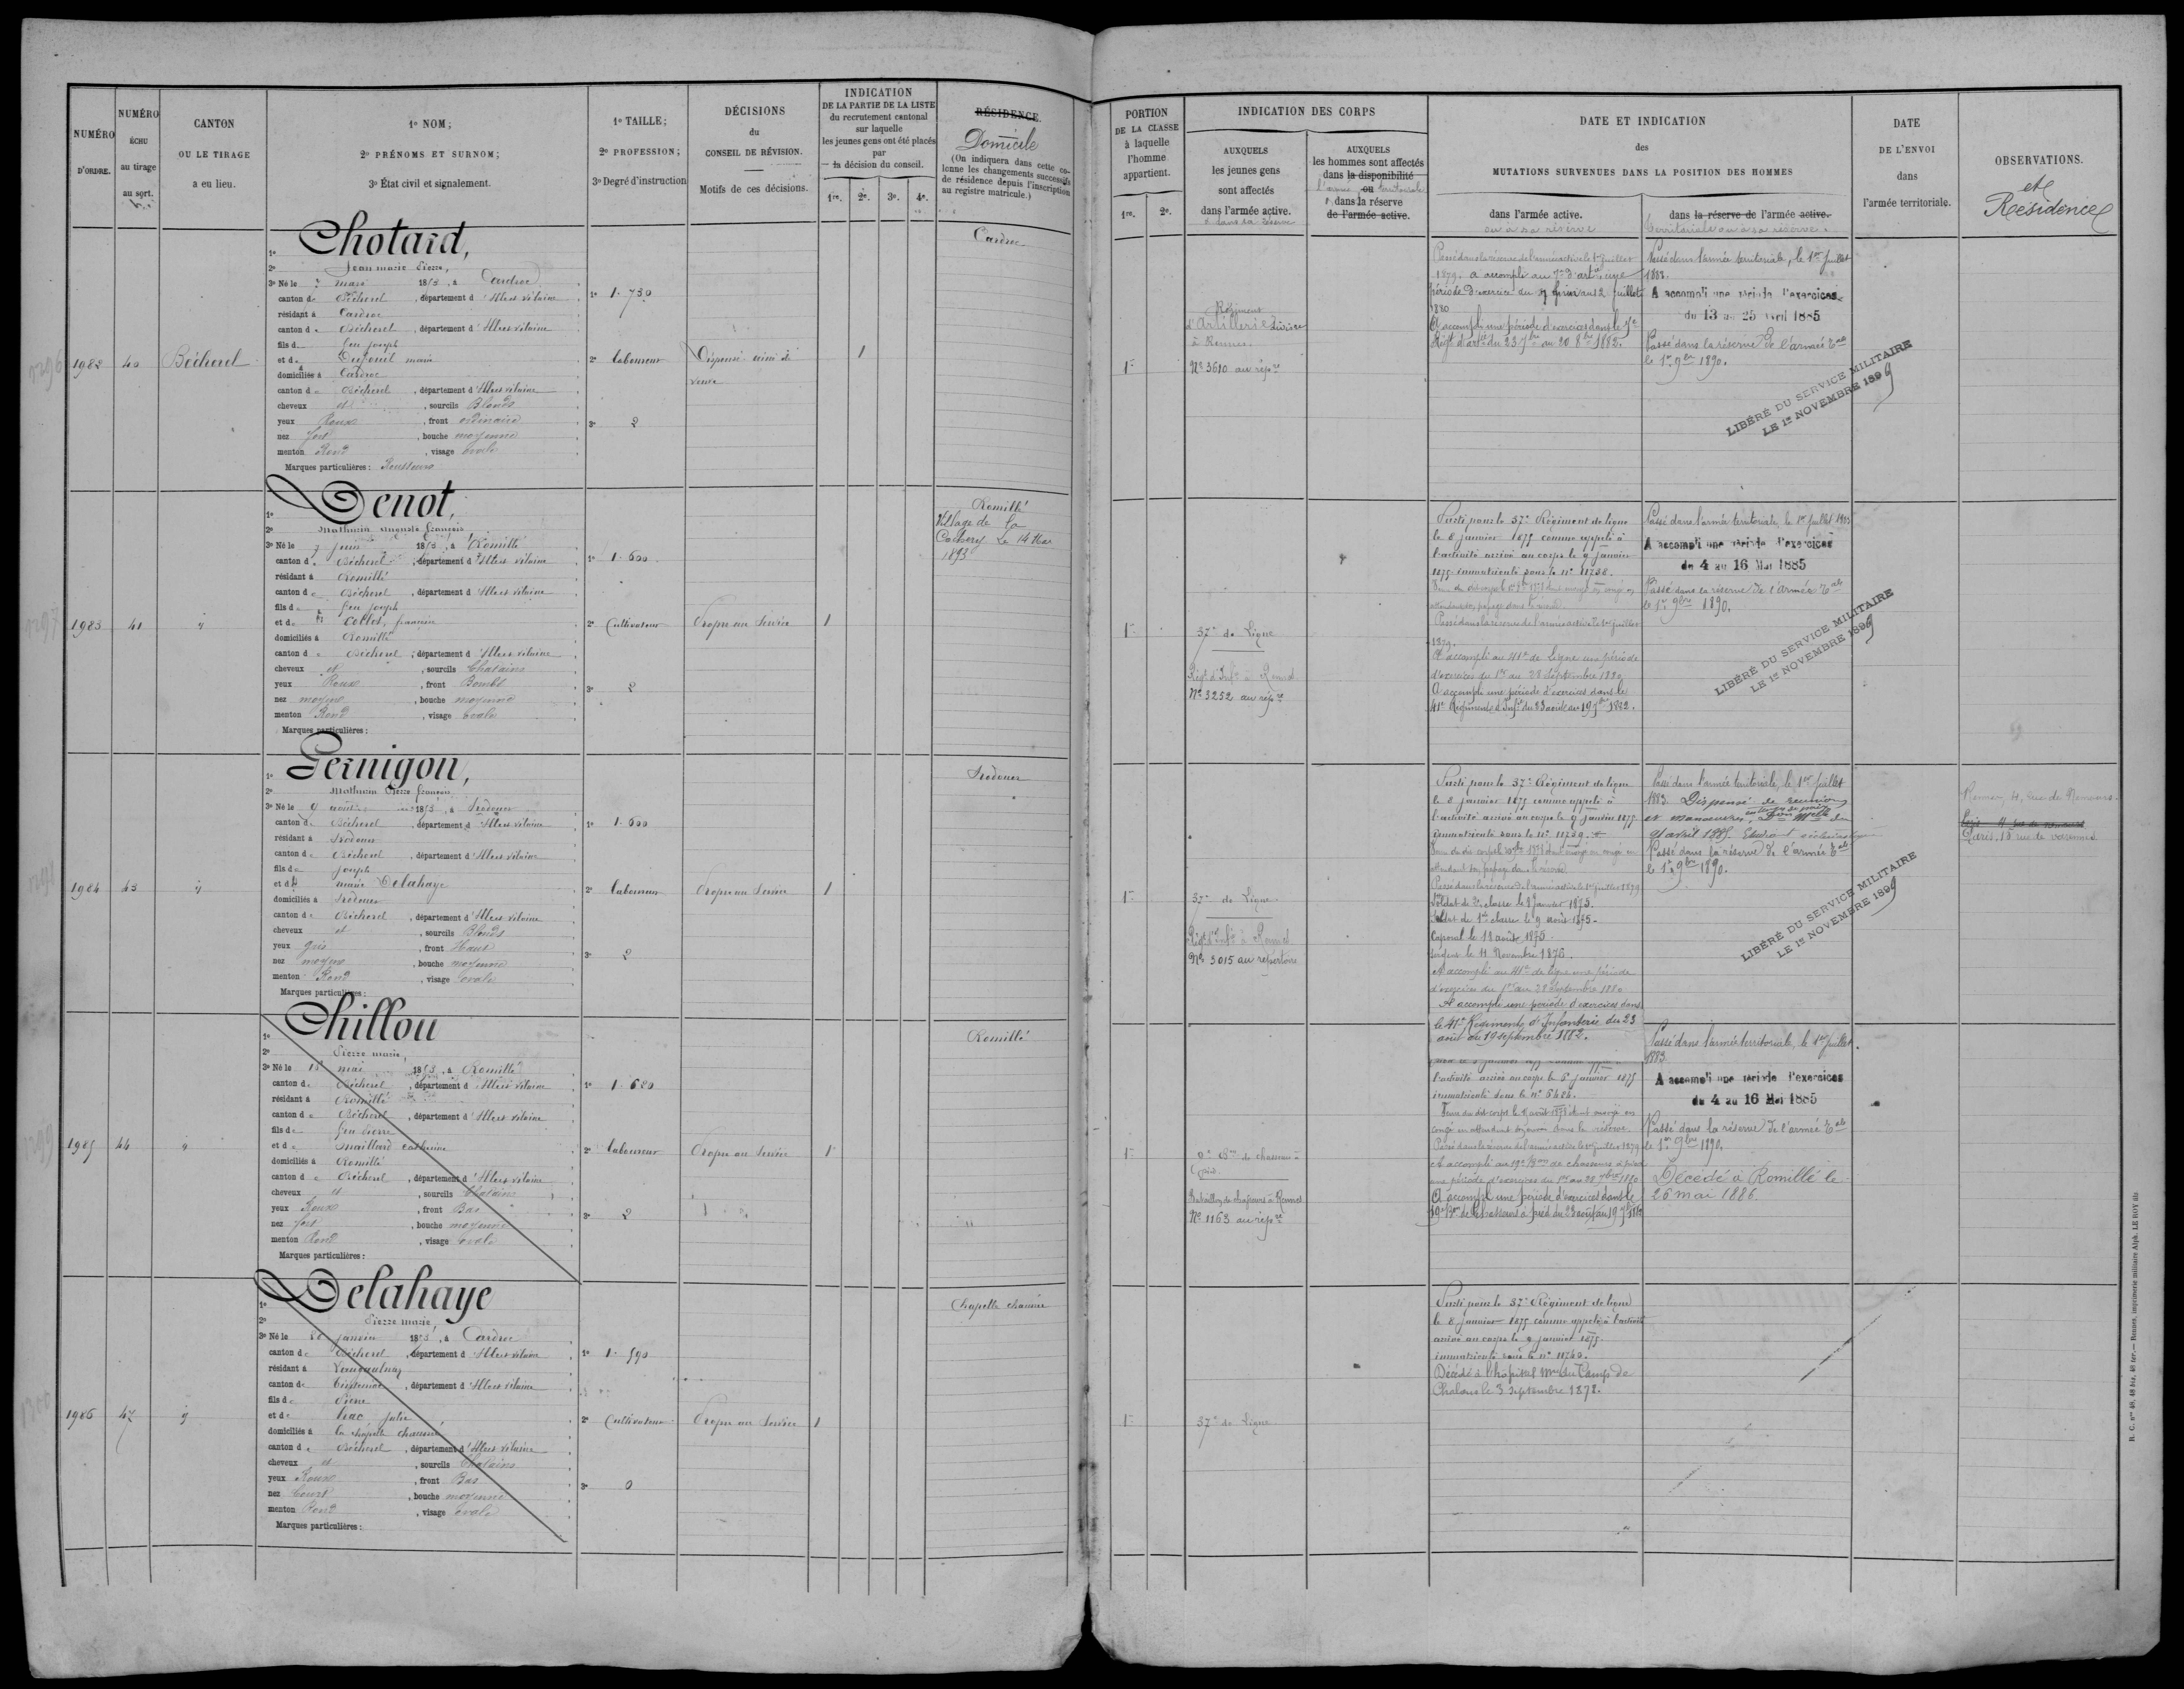 NUMÉRO
D'ORDRE.
NUMÉRO
ÉCHU
au tirage
au sort.
CANTON
OU LE TIRAGE
a eu lieu.
1º NOM;
2º PRÉNOMS ET SURNOM;
3º État civil et signalement.
1º TAILLE;
2º PROFESSION;
3º Degré d'instruction
DÉCISIONS
du
CONSEIL DE RÉVISION.
Motifs de ces décisions.
INDICATION
DE LA PARTIE DE LA LISTE
du recrutement cantonal
sur laquelle
les jeunes gens ont été placés
par
la décision du conseil.
1re. 2e. 3e. 4e.
RÉSIDENCE.
Domicile
(On indiquera dans cette co-
lonne les changements successifs
de résidence depuis l'inscription
au registre matricule.)
PORTION
DE LA CLASSE
à laquelle
l'homme
appartient.
1re. 2e.
INDICATION DES CORPS
AUXQUELS
les jeunes gens
sont affectés
dans l'armée active.
& dans sa réserve
AUXQUELS
les hommes sont affectés
dans la disponibilité
l'armée ou territoriale
& dans la réserve
de l'armée active.
DATE ET INDICATION
des
MUTATIONS SURVENUES DANS LA POSITION DES HOMMES
dans l'armée active.
ou à sa réserve
dans la réserve de l'armée active.
territoriale ou à sa réserve.
DATE
DE L'ENVOI
dans
l'armée territoriale.
OBSERVATIONS.
et
Résidence
1982 40 Bécherel
1º Chotard,
2º Jean marie Pierre,
3º Né le mars 1853, à Cardroc
canton de Bécherel, département d'Ille et vilaine
résidant à Cardroc
canton de Bécherel, département d'Ille et vilaine
fils de feu joseph
et de Dufeuil marie
domiciliés à Cardroc
canton de Bécherel, département d'Ille et vilaine
cheveux et, sourcils Blonds
yeux Roux, front ordinaire
nez fort, bouche moyenne
menton Rond, visage ovale
Marques particulières: Rousseurs
1º 1.730
2º laboureur
3º 2
Dispensé aîné de
veuve
1
Cardroc
1re
Régiment
d'Artillerie
à Rennes
Nº 3610 au répre
Passé dans la réserve de l'armée active le 1er juillet
1879. a accompli au 7e d'artie une
période d'exercice du juin au 2 juillet
1880
A accompli une période d'exercices dans le 7e
Régt d'artie du 23 7bre au 20 8bre 1882.
Passé dans l'armée territoriale, le 1er juillet
1883.
A accompli une période d'exercices
du 13 au 25 avril 1885
Passé dans la réserve de l'armée Tale
le 1er 9bre 1890.
LIBÉRÉ DU SERVICE MILITAIRE
LE 1er NOVEMBRE 1899
1983 41 "
1º Denot,
2º Mathurin Auguste françois
3º Né le 7 juin 1853, à Romillé
canton de Bécherel, département d'Ille et vilaine
résidant à Romillé
canton de Bécherel, département d'Ille et vilaine
fils de feu joseph
et de Collet, francine
domiciliés à Romillé
canton de Bécherel, département d'Ille et vilaine
cheveux et, sourcils Chatains
yeux Roux, front Bombé
nez moyen, bouche moyenne
menton Rond, visage ovale
Marques particulières:
1º 1.600
2º Cultivateur
3º 2
Propre au Service
1
Romillé
Village de la
le 14 Mai
1893
1re
37e de Ligne
Régt d'Infie à Rennes
Nº 3252 au répre
Parti pour le 37e Régiment de ligne
le 8 janvier 1875 comme appelé à
l'activité arrivé au corps le 9 janvier
1875 immatriculé sous le nº 11738.
Passé dans la réserve de l'armée active le 1er juillet
1879.
A accompli au 41e de Ligne une période
d'exercices du 1er au 28 Septembre 1880
A accompli une période d'exercices dans le
41e Régiment d'Infie du 23 août au 19 7bre 1882.
Passé dans l'armée territoriale, le 1er juillet 1883
A accompli une période d'exercices
du 4 au 16 Mai 1885
Passé dans la réserve de l'armée Tale
le 1er 9bre 1890.
LIBÉRÉ DU SERVICE MILITAIRE
LE 1er NOVEMBRE 1899
1984 43 "
1º Gernigon,
2º Mathurin Pierre françois
3º Né le 9 août 1853, à Irodouer
canton de Bécherel, département d'Ille et vilaine
résidant à Irodouer
canton de Bécherel, département d'Ille et vilaine
fils de joseph
et de marie Delahaye
domiciliés à Irodouer
canton de Bécherel, département d'Ille et vilaine
cheveux et, sourcils Blonds
yeux gris, front Haut
nez moyen, bouche moyenne
menton Rond, visage ovale
Marques particulières:
1º 1.600
2º laboureur
3º 2
Propre au Service
1
Irodouer
1re
37e de Ligne
Régt d'Infie à Rennes
Nº 3015 au répertoire
Parti pour le 37e Régiment de ligne
le 8 janvier 1875 comme appelé à
l'activité arrivé au corps le 9 janvier 1875
immatriculé sous le nº 11739.
Passé dans la réserve de l'armée active le 1er juillet 1879
Soldat de 2e classe le 9 Janvier 1875.
Soldat de 1re classe le 9 août 1875.
Caporal le 18 août 1875
Sergent le 11 Novembre 1876.
A accompli au 41e de ligne une période
d'exercices du 1er au 28 Septembre 1880
A accompli une période d'exercices dans
le 41e Régiment d'Infanterie du 23
août au 19 septembre 1882.
Passé dans l'armée territoriale, le 1er juillet
1883. Dispensé de réunions
et manoeuvres,
21 avril 1885.
Passé dans la réserve de l'armée Tale
le 1er 9bre 1890.
LIBÉRÉ DU SERVICE MILITAIRE
LE 1er NOVEMBRE 1899
Rennes, 4, rue de Nemours
Paris, 15 rue de varennes
1985 44 "
1º Chillou
2º Pierre marie,
3º Né le 18 mai 1853, à Romillé
canton de Bécherel, département d'Ille et vilaine
résidant à Romillé
canton de Bécherel, département d'Ille et vilaine
fils de feu Pierre
et de Maillard catherine
domiciliés à Romillé
canton de Bécherel, département d'Ille et vilaine
cheveux et, sourcils Chatains
yeux Roux, front Bas
nez fort, bouche moyenne
menton Rond, visage ovale
Marques particulières:
1º 1.680
2º laboureur
3º 2
Propre au Service
1
Romillé
1re
Bon de chasseurs à
pied
Bataillon de chasseurs à Rennes
Nº 1163 au répre
l'activité arrivé au corps le 6 janvier 1875
immatriculé sous le nº 5486.
Passé dans la réserve de l'armée active le 1er juillet 1879
A accompli au 19e Bon de chasseurs à pied
une période d'exercices du 1er au 28 7bre 1880
A accompli une période d'exercices dans le
19e Bon de Chasseurs à pied du 23 août au 19 7bre 1882
Passé dans l'armée territoriale, le 1er juillet
1883
A accompli une période d'exercices
du 4 au 16 Mai 1885
Passé dans la réserve de l'armée Tale
le 1er 9bre 1890.
Décédé à Romillé le
26 mai 1886.
1986 47 "
1º Delahaye
2º Pierre marie
3º Né le 20 janvier 1853, à Cardroc
canton de Bécherel, département d'Ille et vilaine
résidant à Langualnay
canton de Tinteniac, département d'Ille et vilaine
fils de Pierre
et de julie
domiciliés à la chapelle chaussée
canton de Bécherel, département d'Ille et vilaine
cheveux et, sourcils Chatains
yeux Roux, front Bas
nez Court, bouche moyenne
menton Rond, visage ovale
Marques particulières:
1º 1.590
2º Cultivateur
3º 0
Propre au Service
1
Chapelle chaussée
1re
37e de Ligne
Parti pour le 37e Régiment de ligne
le 8 janvier 1875 comme appelé à l'activité
arrivé au corps le 9 janvier 1875.
immatriculé sous le nº 11740.
Décédé à l'hôpital mre du Camp de
Chalons le 3 Septembre 1878.
R. C. nos 48, 48 bis, 48 ter. — Rennes, imprimerie militaire Alph. LE ROY fils